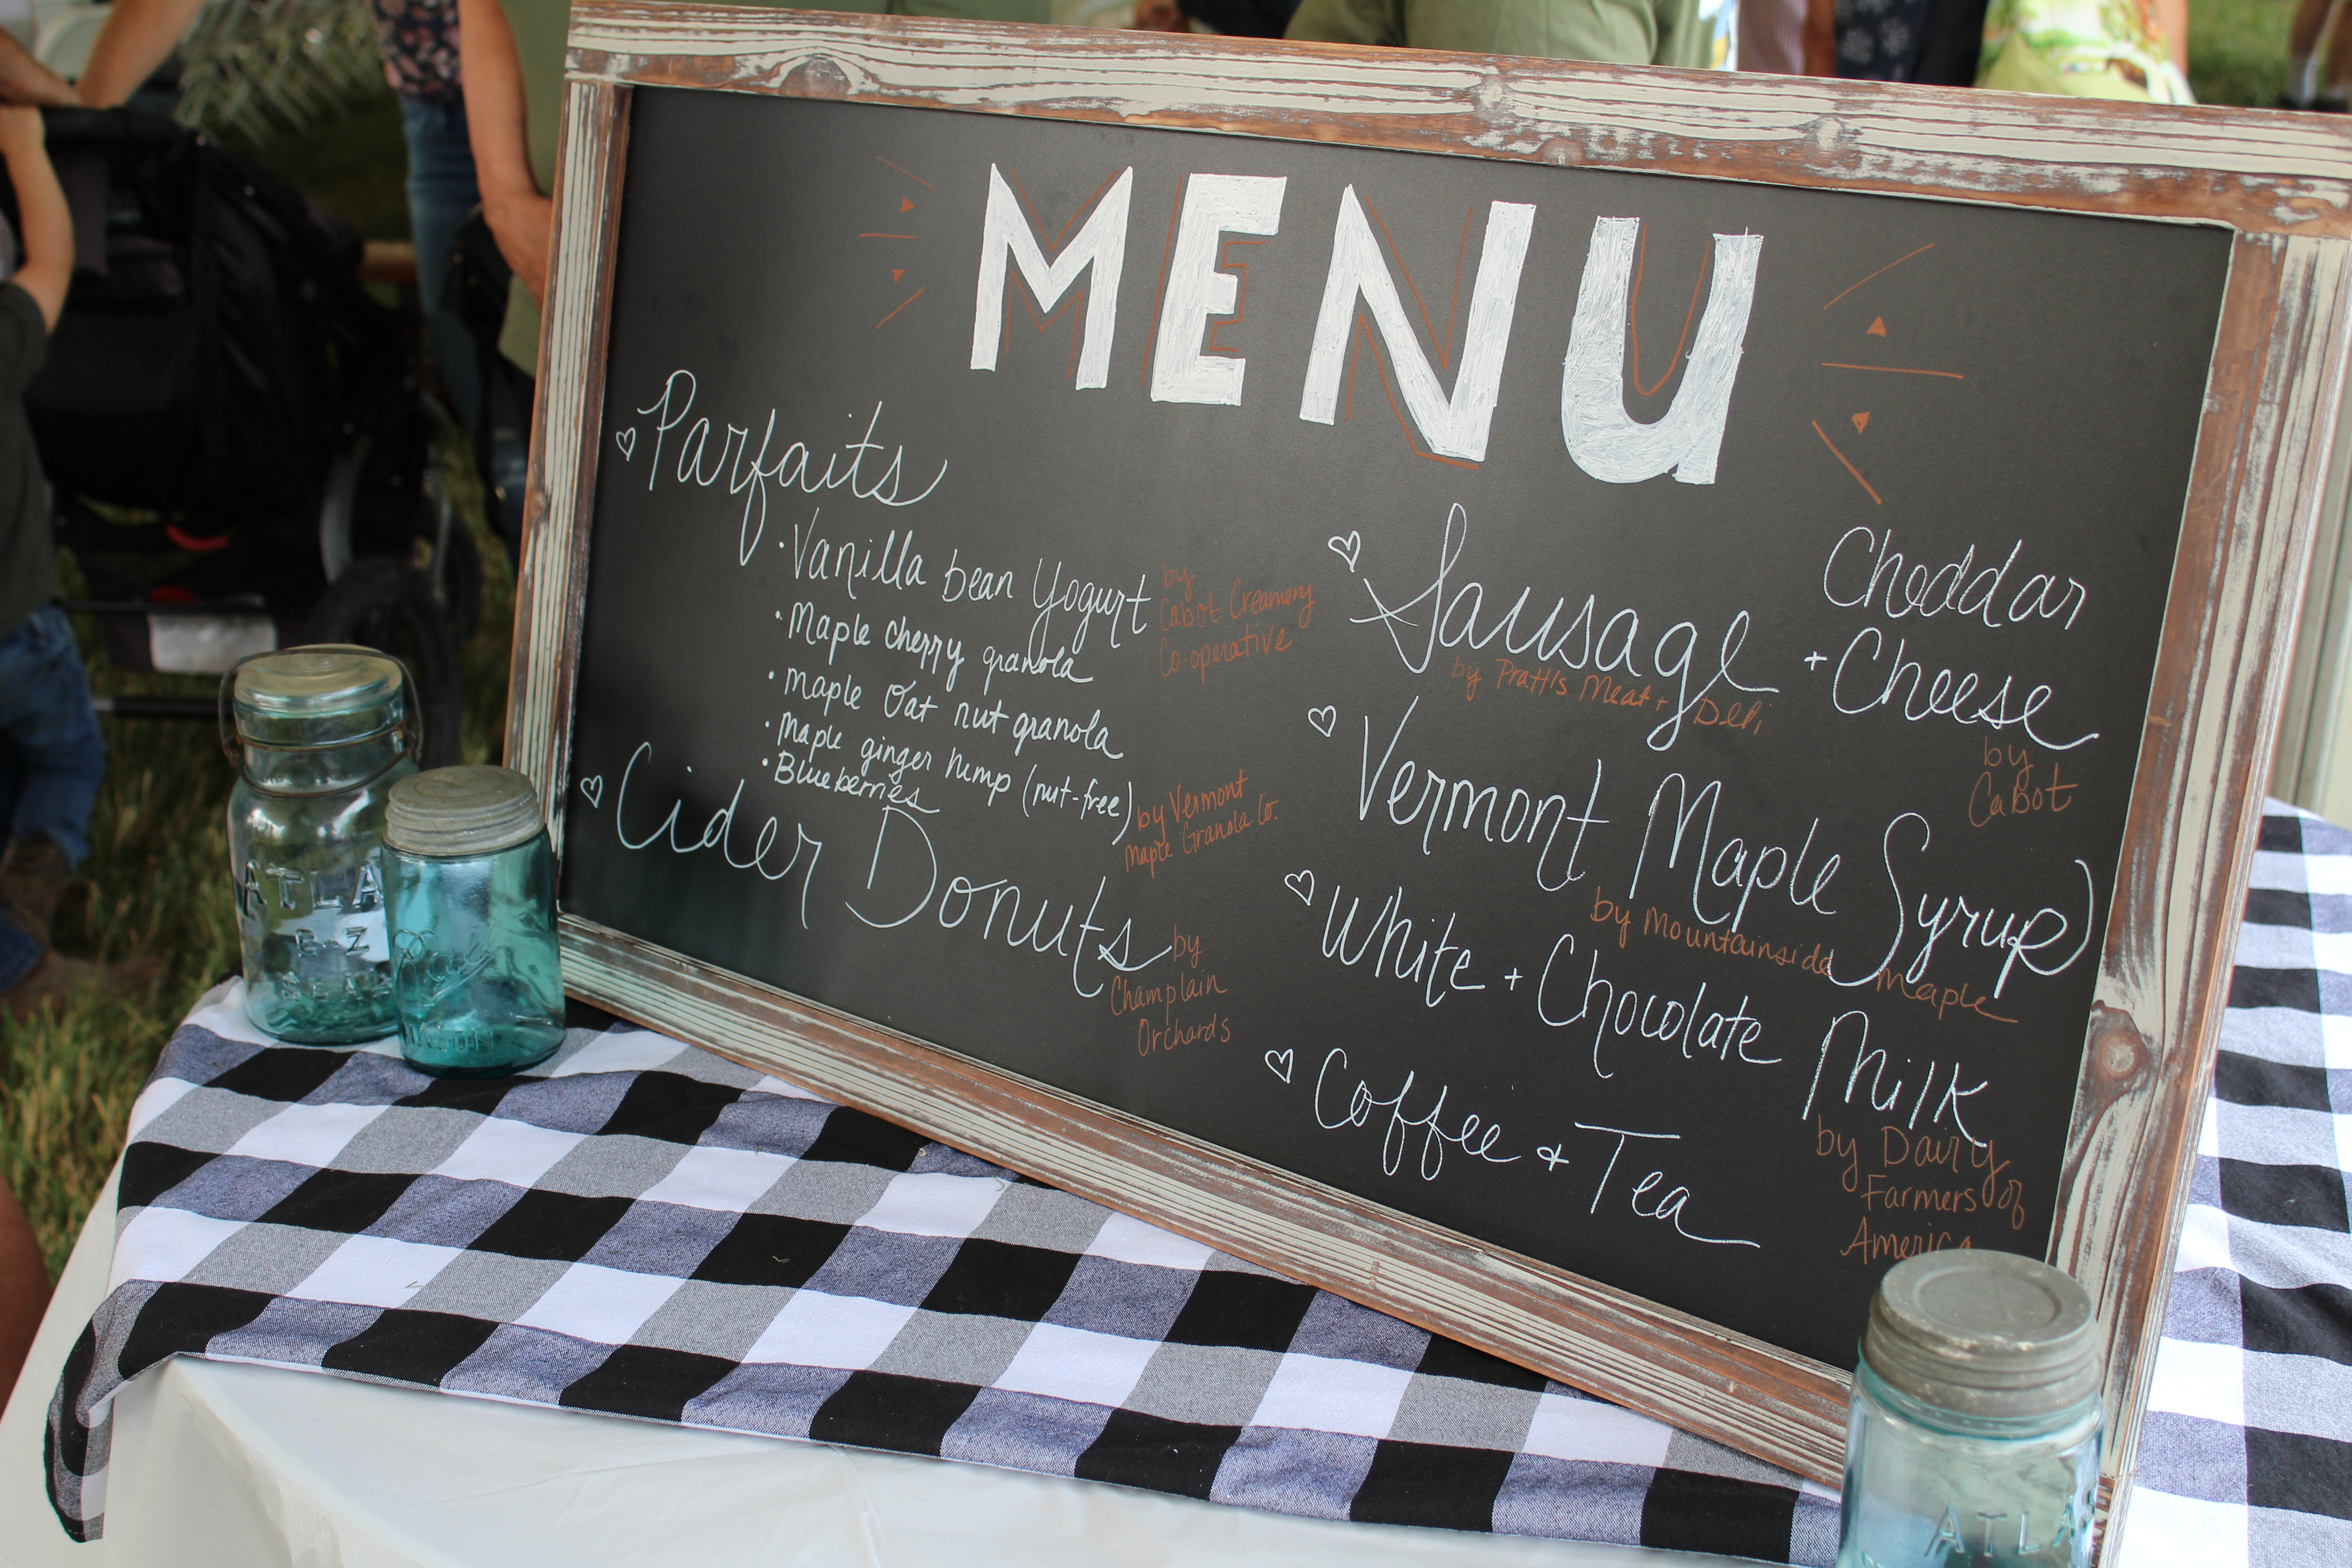 MENU
Parfaits
Vanilla bean Yogurt
by
Cabot Creamery
Co-operative
Maple cherry granola
maple Oat nut granola
Maple ginger hemp (nut-free)
Blueberries
by Vermont
Maple Granola Co.
Cider Donuts
by
Champlain
Orchards
Sausage
by Pratt's Meat + Deli
+ Cheddar
Cheese
by
Cabot
Vermont Maple Syrup
by Mountainside maple
White + Chocolate Milk
by Dairy
Farmers of
America
Coffee & Tea
ATLA
E-Z
SEAL
MASON
ATLA